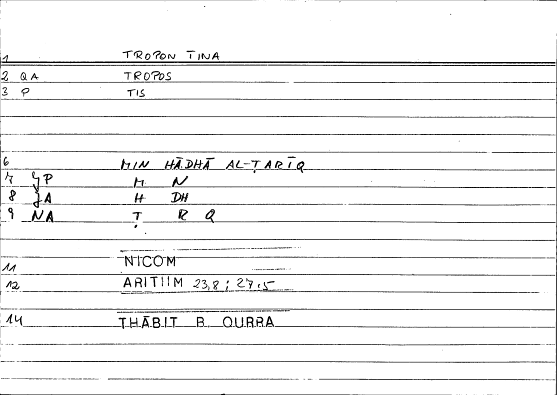 1 TROPON TINA
2 QA TROPOS
3 P TIS
6 MIN HĀDHĀ AL-ṬARĪQ
7 JP M N
8 JA H DH
9 NA Ṭ R Q
11 NICOM
12 ARITIIM 23,8; 27.5
14 THĀBIT B. QURRA